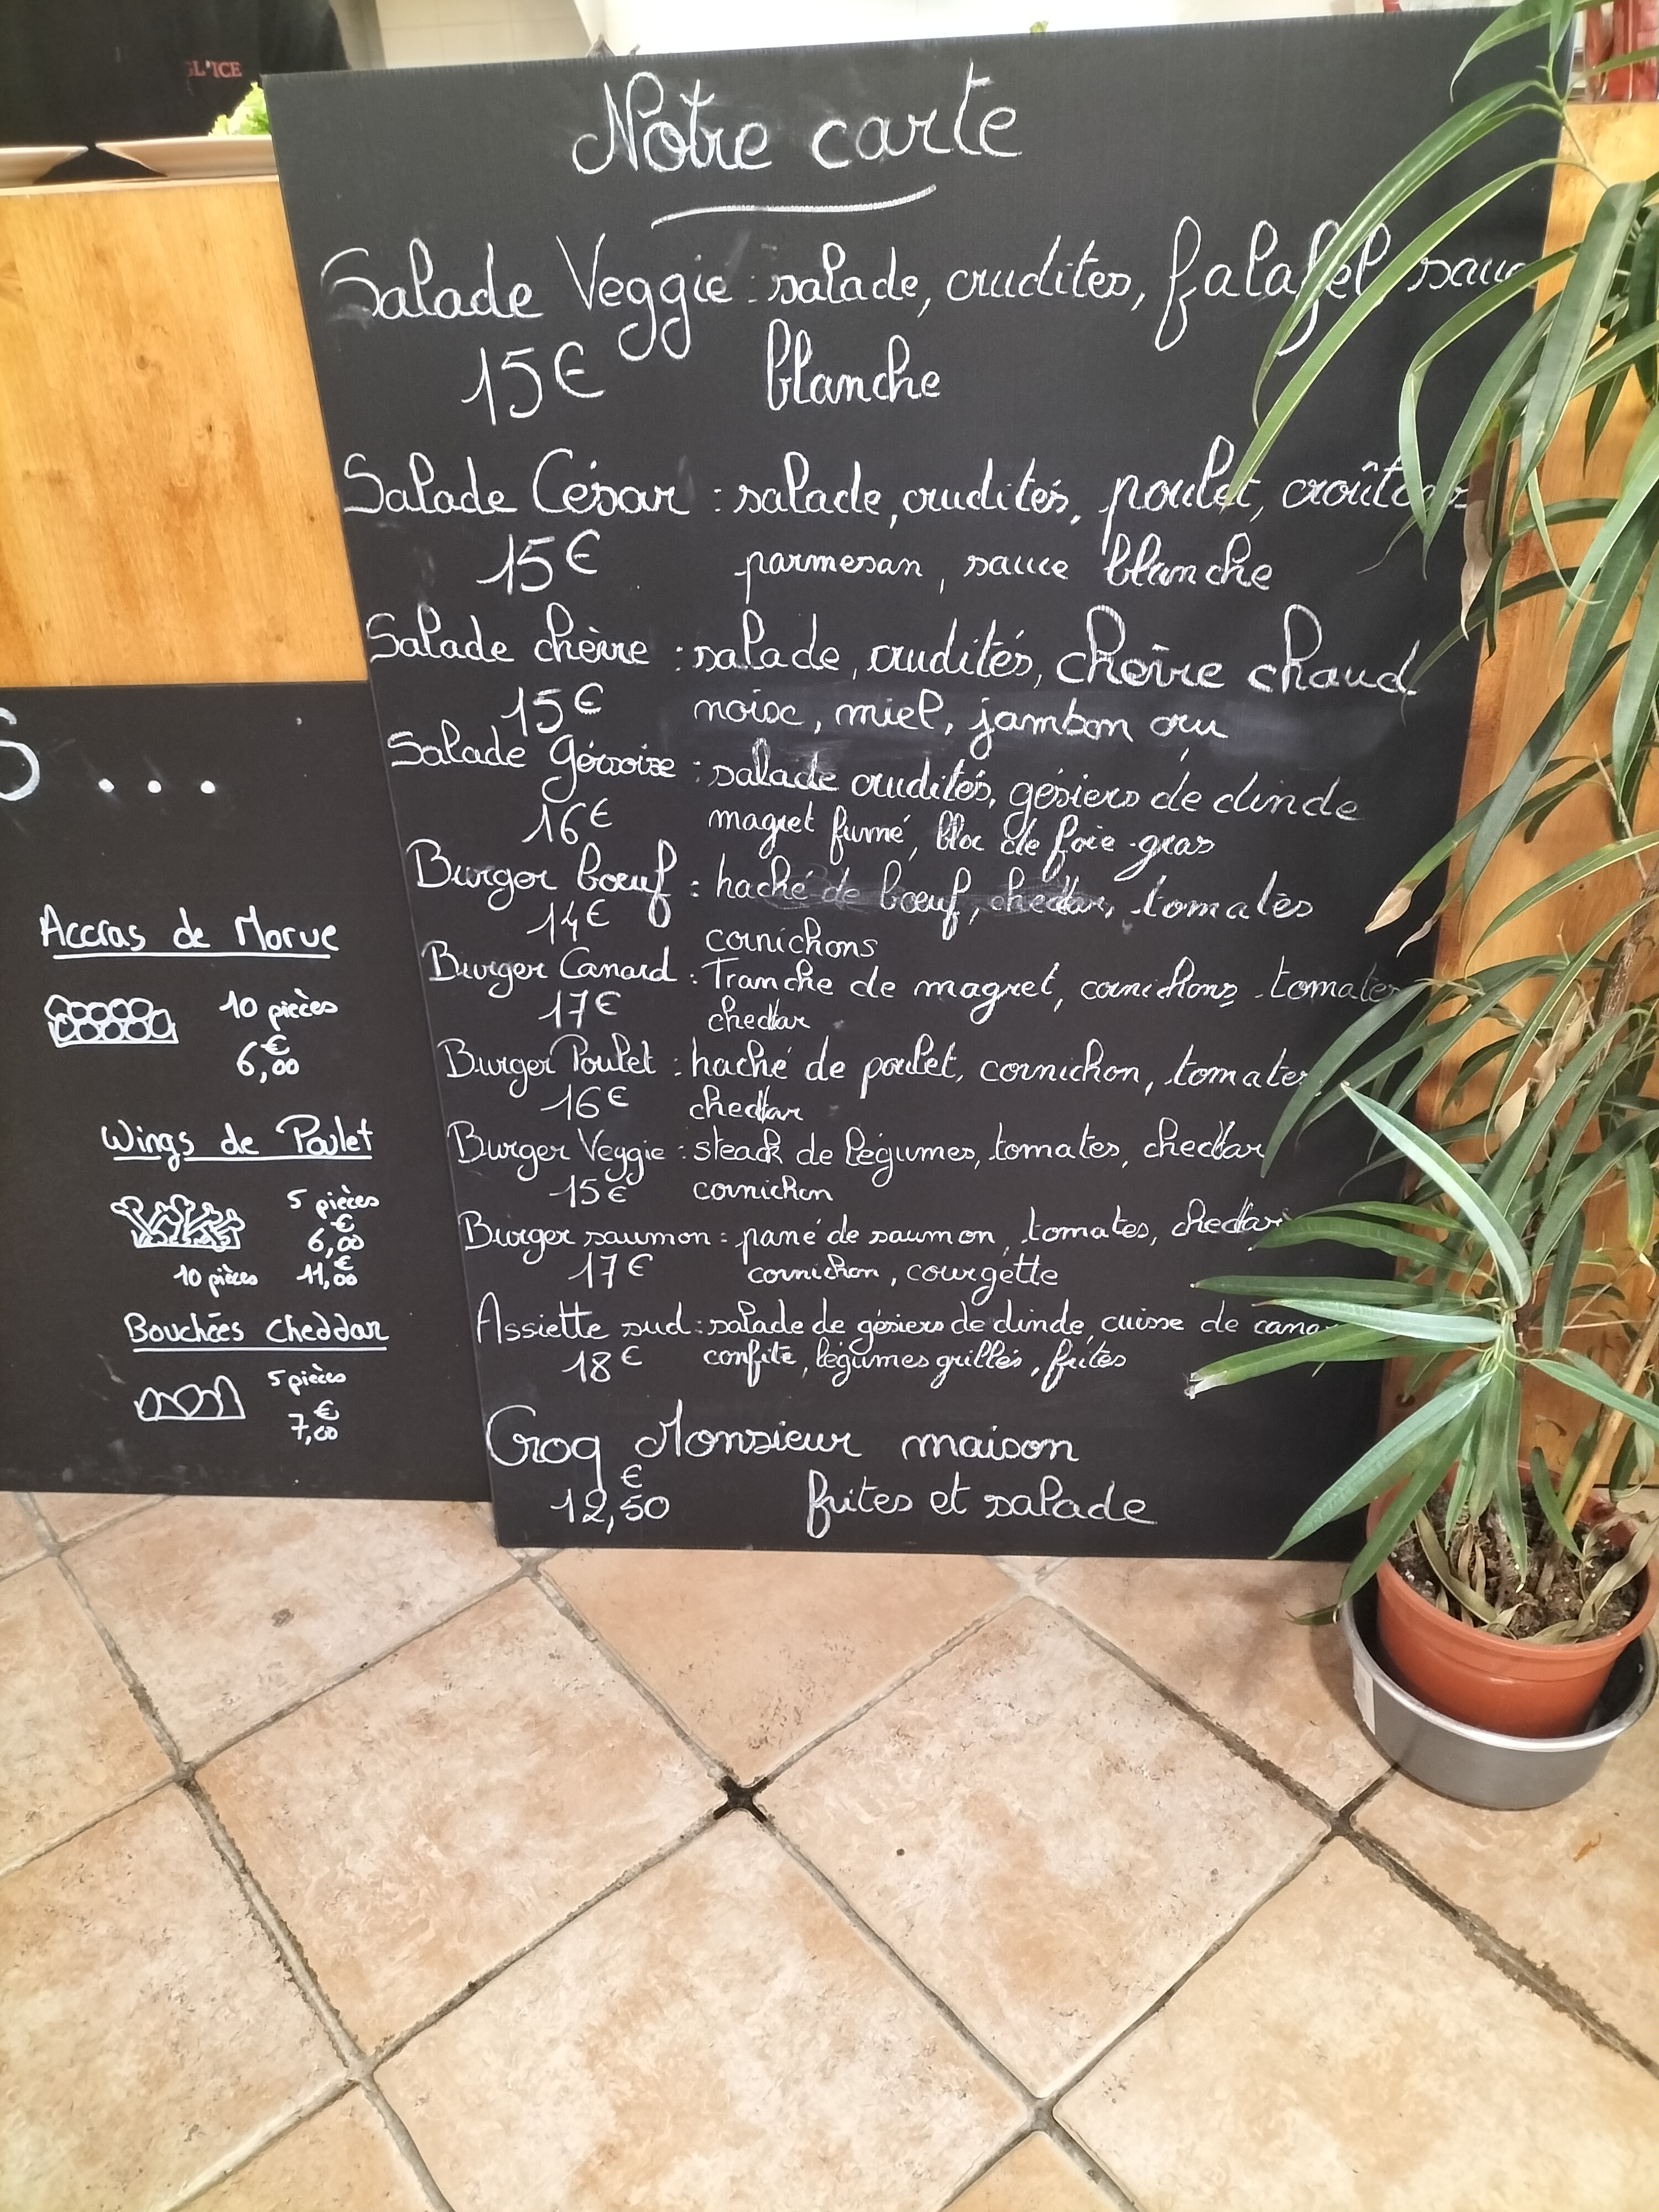 GL'ICE
Notre carte
Salade Veggie : salade, crudites, falafel sauc
15€ blanche
Salade César : salade, crudités, poulet, croûtons
15€ parmesan, sauce blanche
Salade chèvre : salade, crudités, chèvre chaud
15€ noix, miel, jambon cru
Salade Gersoise : salade crudités, gésiers de dinde
16€ magret fumé, bloc de foie-gras
Burger bœuf : haché de bœuf, cheddar, tomates
14€ cornichons
Burger Canard : Tranche de magret, cornichons tomates
17€ cheddar
Burger Poulet : haché de poulet, cornichon, tomates
16€ cheddar
Burger Veggie : steack de légumes, tomates, cheddar
15€ cornichon
Burger saumon : pané de saumon, tomates, cheddar
17€ cornichon, courgette
Assiette sud : salade de gésiers de dinde, cuisse de cana
18€ confite, légumes grillés, frites
Croq Monsieur maison
12,50€ frites et salade
S...
Accras de Morue
10 pièces
6,00€
Wings de Poulet
5 pièces
6,00€
10 pièces 11,00€
Bouchées cheddar
5 pièces
7,00€